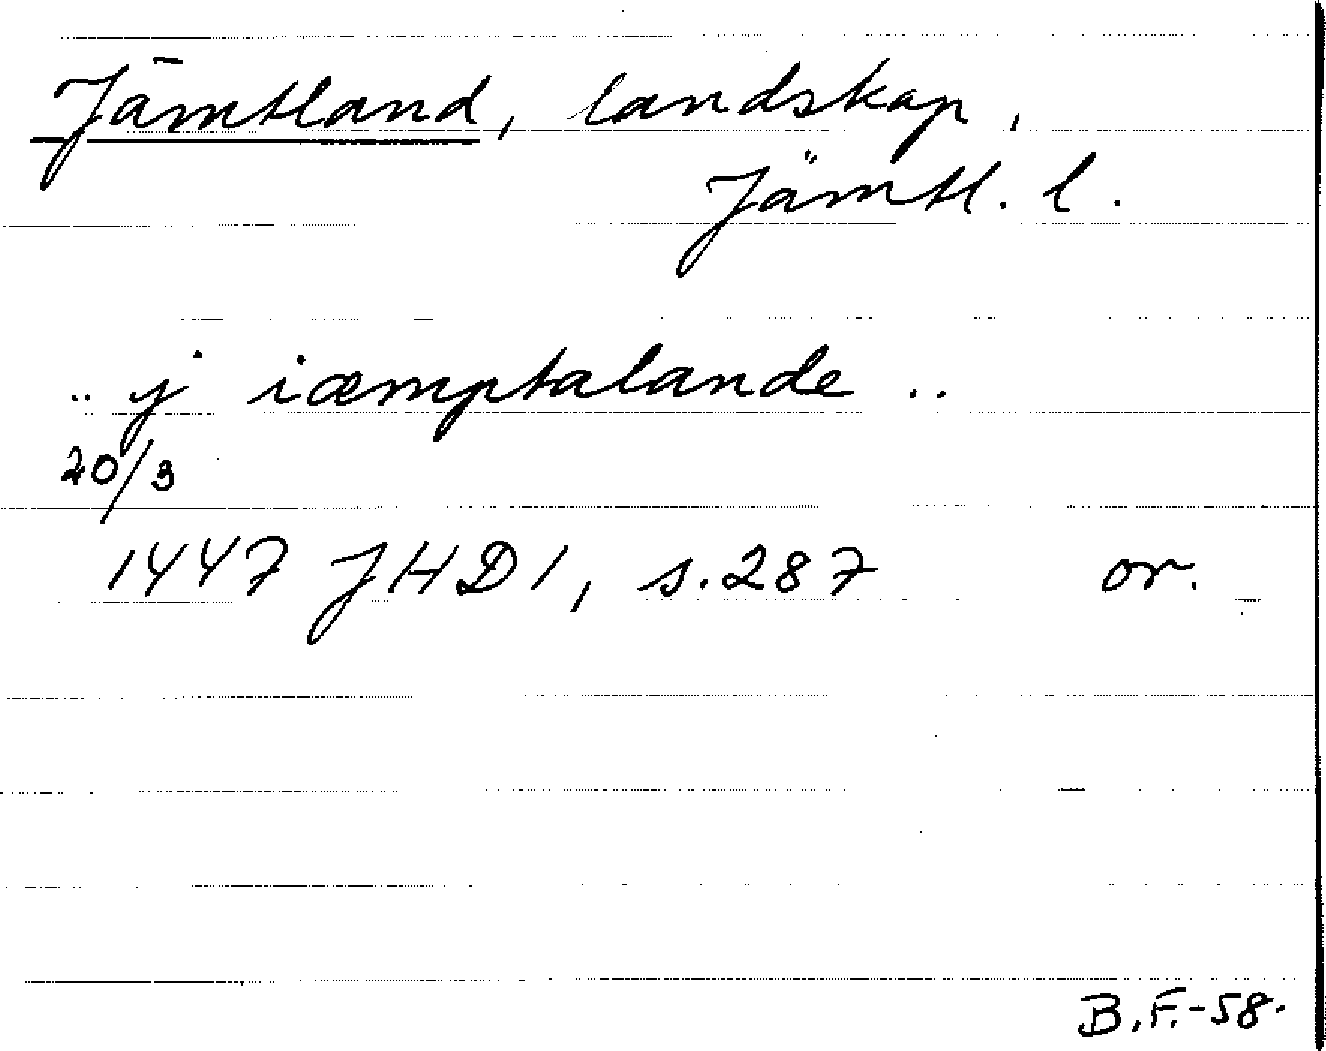 Jämtland, landskap,
Jämtl. l.
.. j iæmptalande ..
20/3
1447 JHD 1, s. 287 or.
B.F.-58.